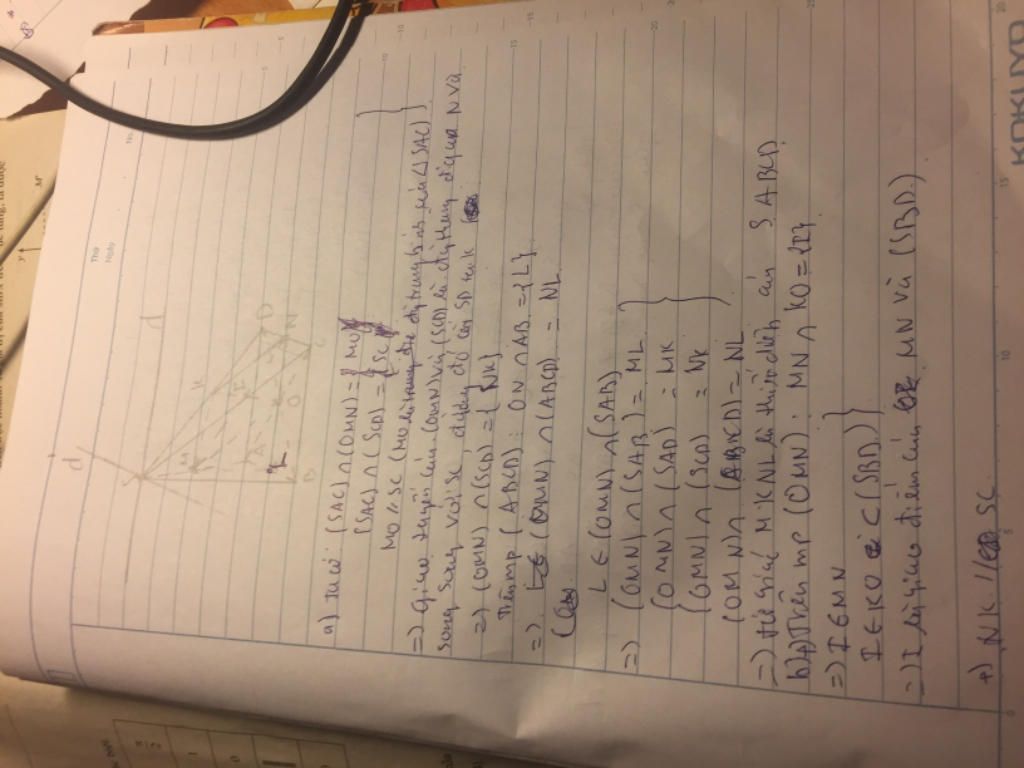 Thứ
Ngày
No.
d'
S
d
M
K
I
A
D
N
L
O
B
C
a) Ta có (SAC) ∩ (OMN) = MO
(SAC) ∩ (SCD) = SC
MO // SC (MO là đg trung bình của (SAC)
=> Giao tuyến của (OMN) và (SCD) là đường thẳng đi qua N và
song song với SC, đường đó cắt SD tại K
=> (OMN) ∩ (SCD) = {NK}
Trên mp (ABCD): ON ∩ AB = {L}
=> (OMN) ∩ (ABCD) = NL
L ∈ (OMN) ∩ (SAB)
=> (OMN) ∩ (SAB) = ML
(OMN) ∩ (SAD) = MK
(OMN) ∩ (SCD) = NK
(OMN) ∩ (ABCD) = NL
=> tứ giác MKNL là thiết diện của S.ABCD
b) +) Trên mp (OMN): MN ∩ KO = {I}
=> I ∈ MN
I ∈ KO ⊂ (SBD)
=> I là giao điểm của MN và (SBD)
+) NK // SC
KOKUYO